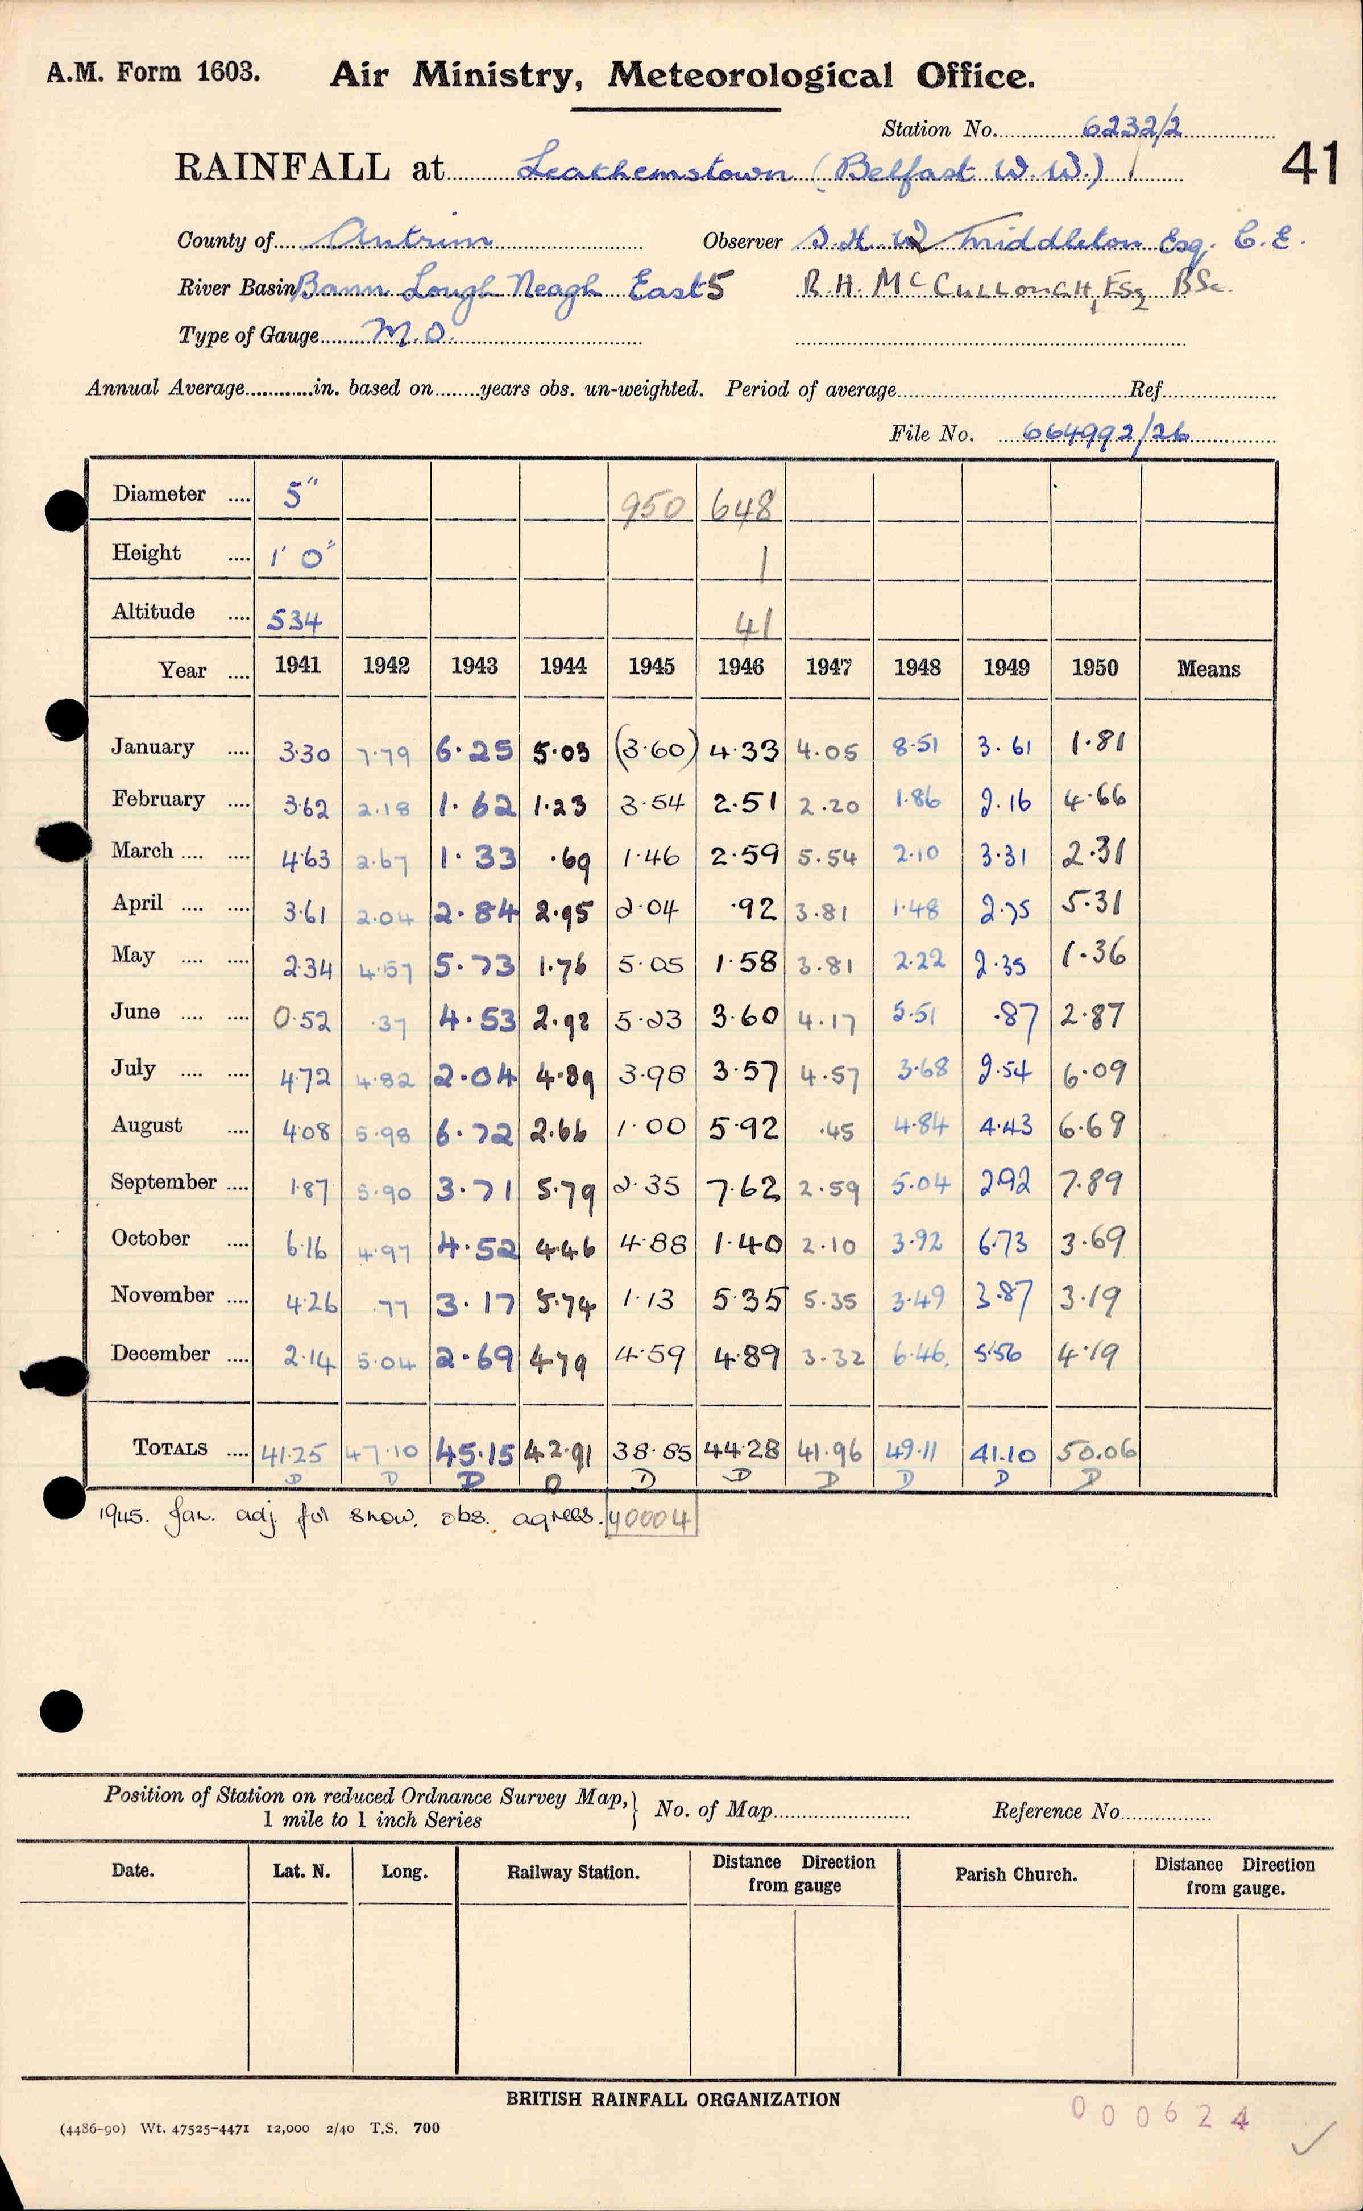 A.M. Form 1603. Air Ministry, Meteorological Office.
Station No. 6232/2
41
RAINFALL at Leathemstown (Belfast W.W.)
County of Antrim Observer Middleton Esq. C.E.
River Basin Bann Lough Neagh East 5 R.H. McCullough, Esq BSc.
Type of Gauge M.O.
Annual Average in. based on years obs. un-weighted. Period of average Ref
File No. 664992/26
Diameter 5" 950 648
Height 1' 0" 1
Altitude 534 41
Year 1941 1942 1943 1944 1945 1946 1947 1948 1949 1950 Means
January 3.30 7.79 6.25 5.03 (3.60) 4.33 4.05 8.51 3.61 1.81
February 3.62 2.18 1.62 1.23 3.54 2.51 2.20 1.86 2.16 4.66
March 4.63 2.67 1.33 .69 1.46 2.59 5.54 2.10 3.31 2.31
April 3.61 2.04 2.84 2.95 2.04 .92 3.81 1.48 2.75 5.31
May 2.34 4.57 5.73 1.76 5.05 1.58 3.81 2.22 2.35 1.36
June 0.52 .37 4.53 2.92 5.23 3.60 4.17 5.51 .87 2.87
July 4.72 4.82 2.04 4.89 3.98 3.57 4.57 3.68 2.54 6.09
August 4.08 5.98 6.72 2.66 1.00 5.92 .45 4.84 4.43 6.69
September 1.87 5.90 3.71 5.79 2.35 7.62 2.59 5.04 2.92 7.89
October 6.16 4.97 4.52 4.46 4.88 1.40 2.10 3.92 6.73 3.69
November 4.26 .77 3.17 5.74 1.13 5.35 5.35 3.49 3.87 3.19
December 2.14 5.04 2.69 4.79 4.59 4.89 3.32 6.46 5.56 4.19
TOTALS 41.25 47.10 45.15 42.91 38.85 44.28 41.96 49.11 41.10 50.06
D D D D D D D D D D
1945. Jan. adj for snow. obs. agrees. 40004
Position of Station on reduced Ordnance Survey Map,
1 mile to 1 inch Series
No. of Map Reference No.
Date. Lat. N. Long. Railway Station. Distance Direction from gauge Parish Church. Distance Direction from gauge.
BRITISH RAINFALL ORGANIZATION
000624
(4486-90) Wt. 47525-4471 12,000 2/40 T.S. 700